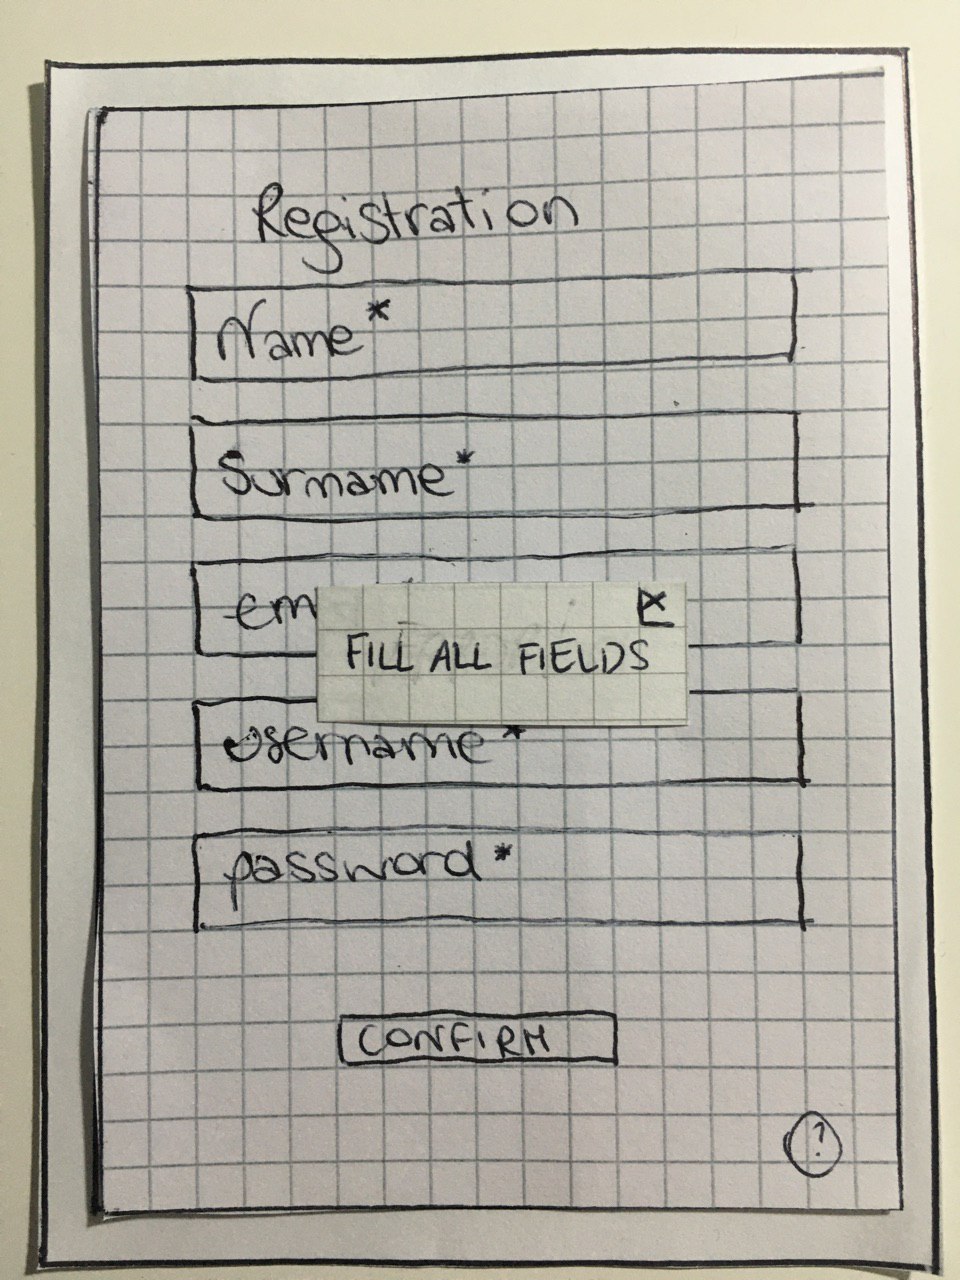 Registration
Name*
Surname*
em
X
FILL ALL FIELDS
username*
password*
CONFIRM
?